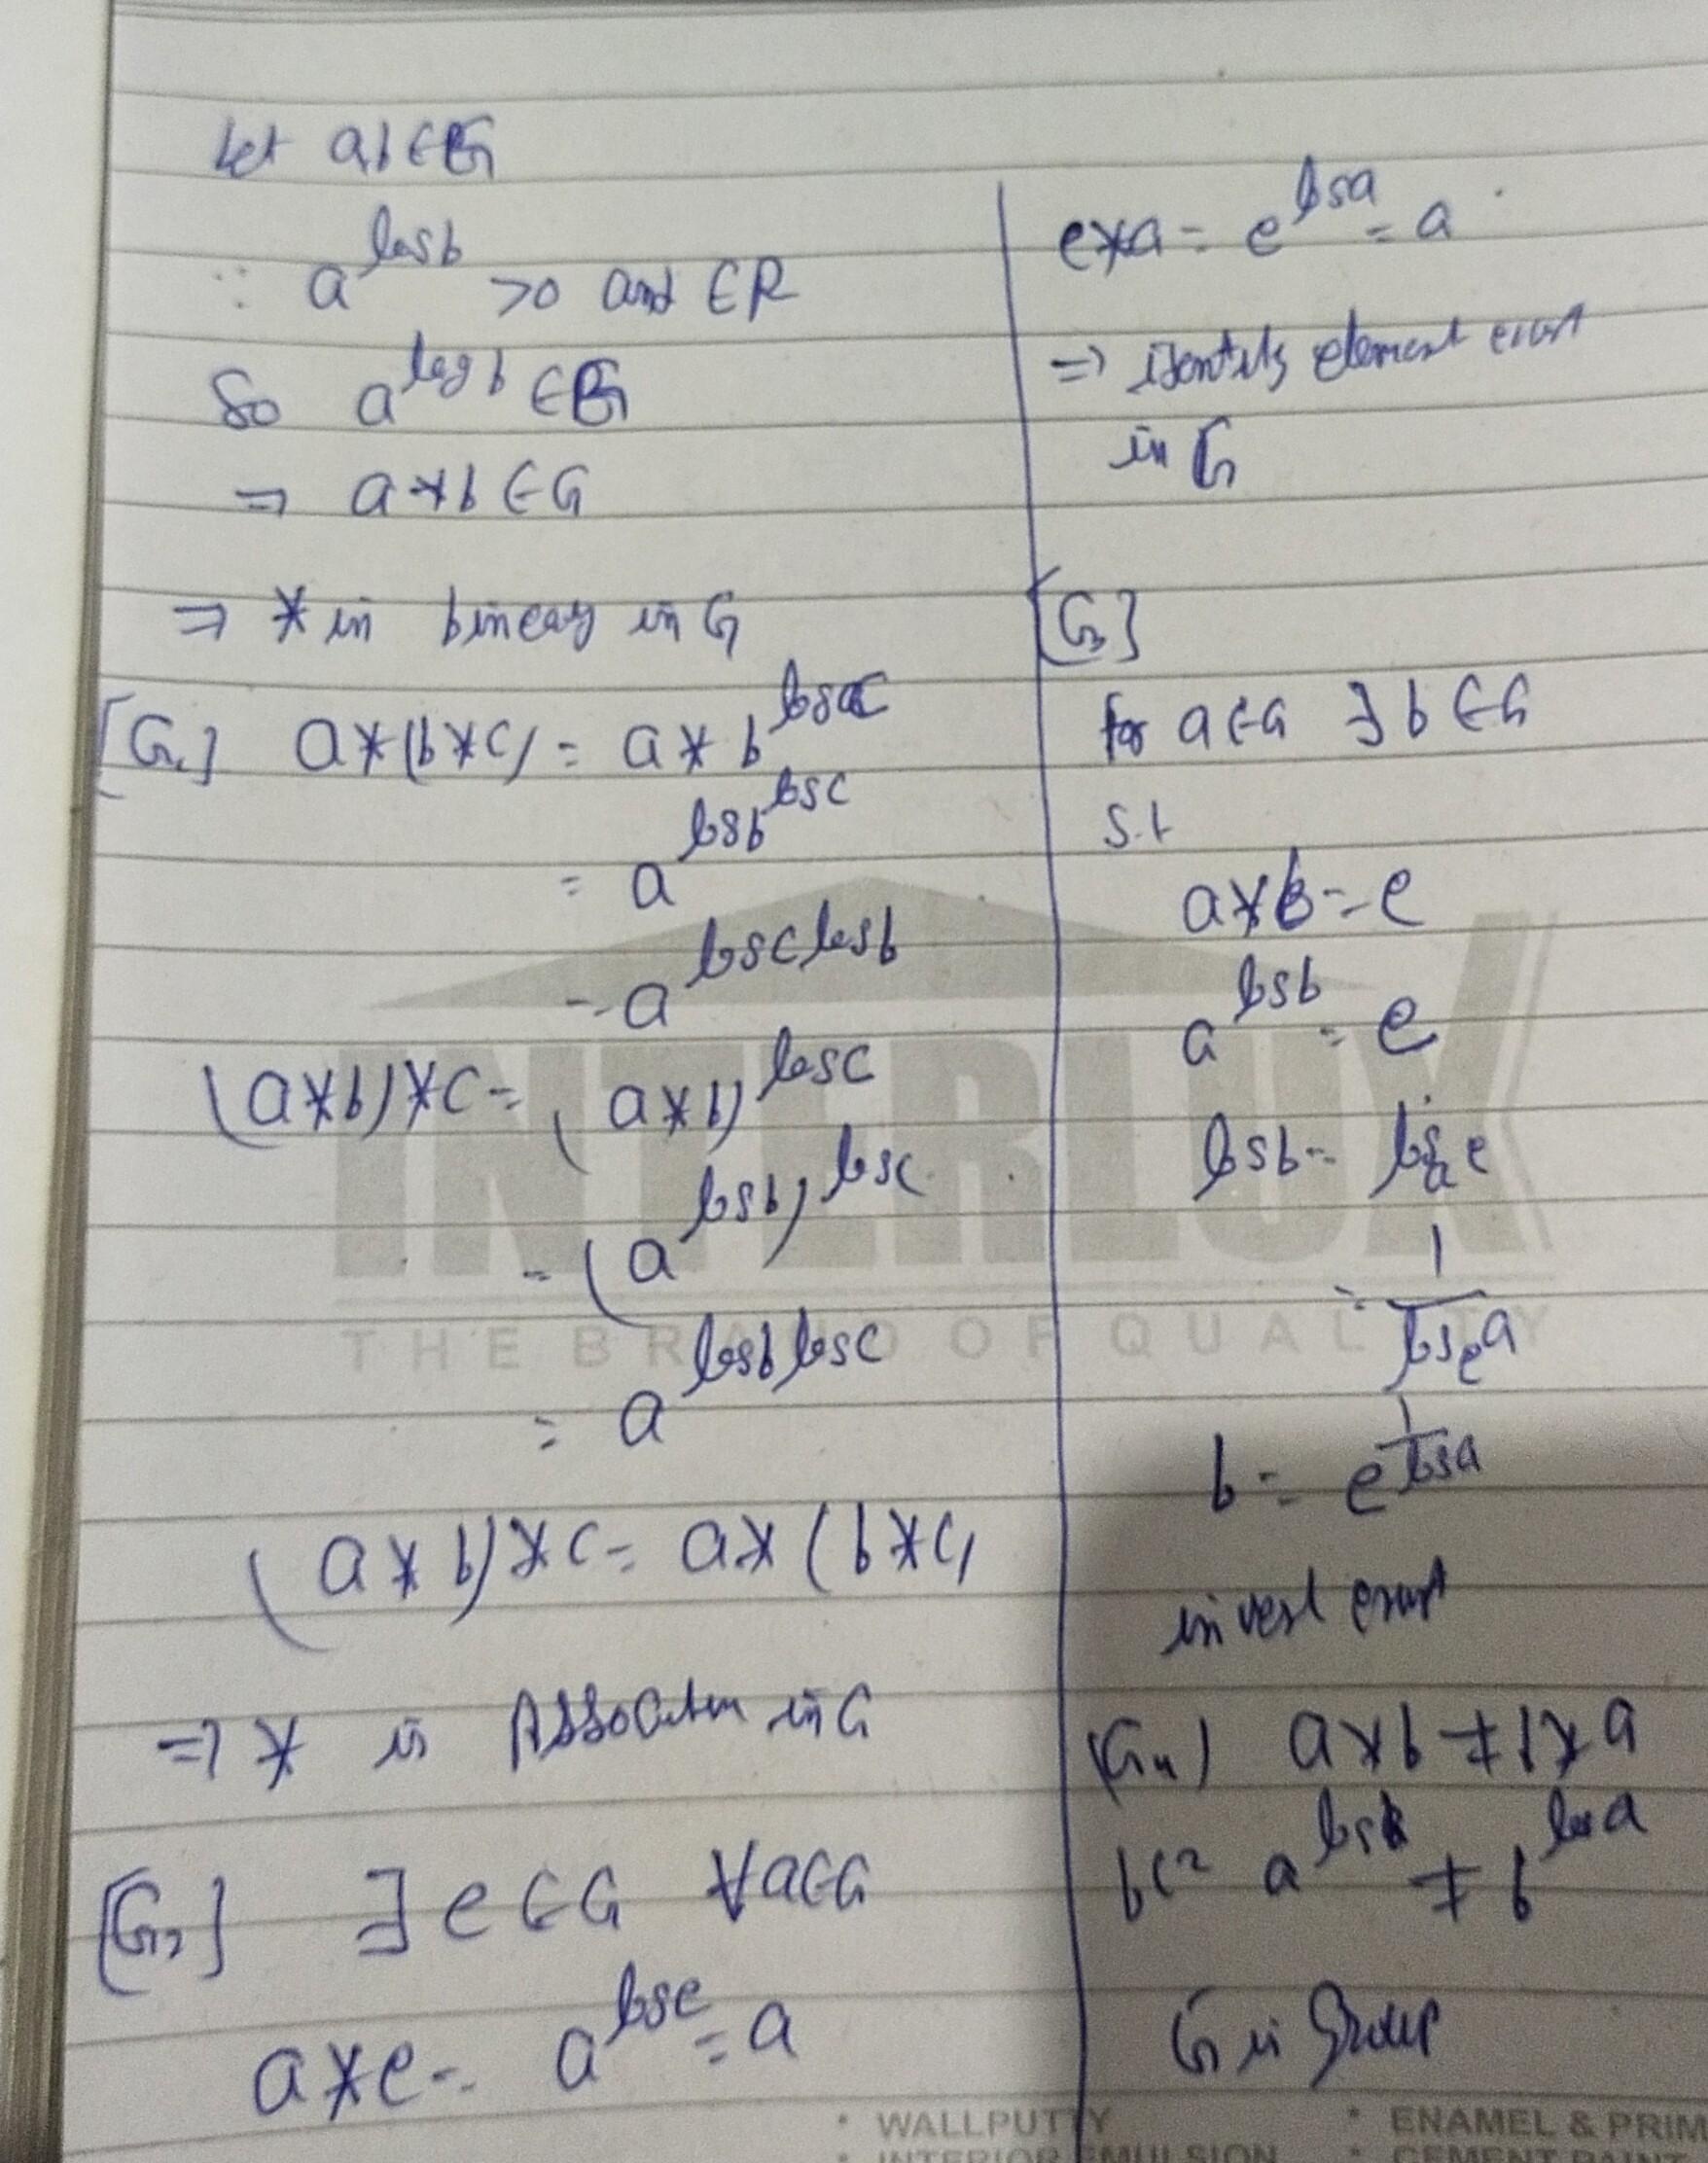 Let a,b ∈ G
∵ a^{log b} > 0 and ∈ R
So a^{log b} ∈ G
⇒ a * b ∈ G
⇒ * in binary in G
[G₁] a*(b*c) = a * b^{log c}
= a^{log b^{log c}}
= a^{log c log b}
(a*b)*c = (a*b)^{log c}
= (a^{log b})^{log c}
= a^{log b log c}
(a*b)*c = a*(b*c)
⇒ * is Associative in G
[G₂] ∃ e ∈ G ∀ a ∈ G
a*e = a^{log e} = a
e*a = e^{log a} = a
⇒ identity element exist
in G
[G₃]
for a ∈ G ∃ b ∈ G
s.t
a*b = e
a^{log b} = e
log b = log_a e
= 1/log_e a
b = e^{1/log a}
exist
(G₄) a*b ≠ b*a
bc² a^{log b} ≠ b^{log a}
G is Group
INTERLUX
THE BRAND OF QUALITY
• WALLPUTTY • ENAMEL & PRIM
• INTERIOR EMULSION • CEMENT PAINT